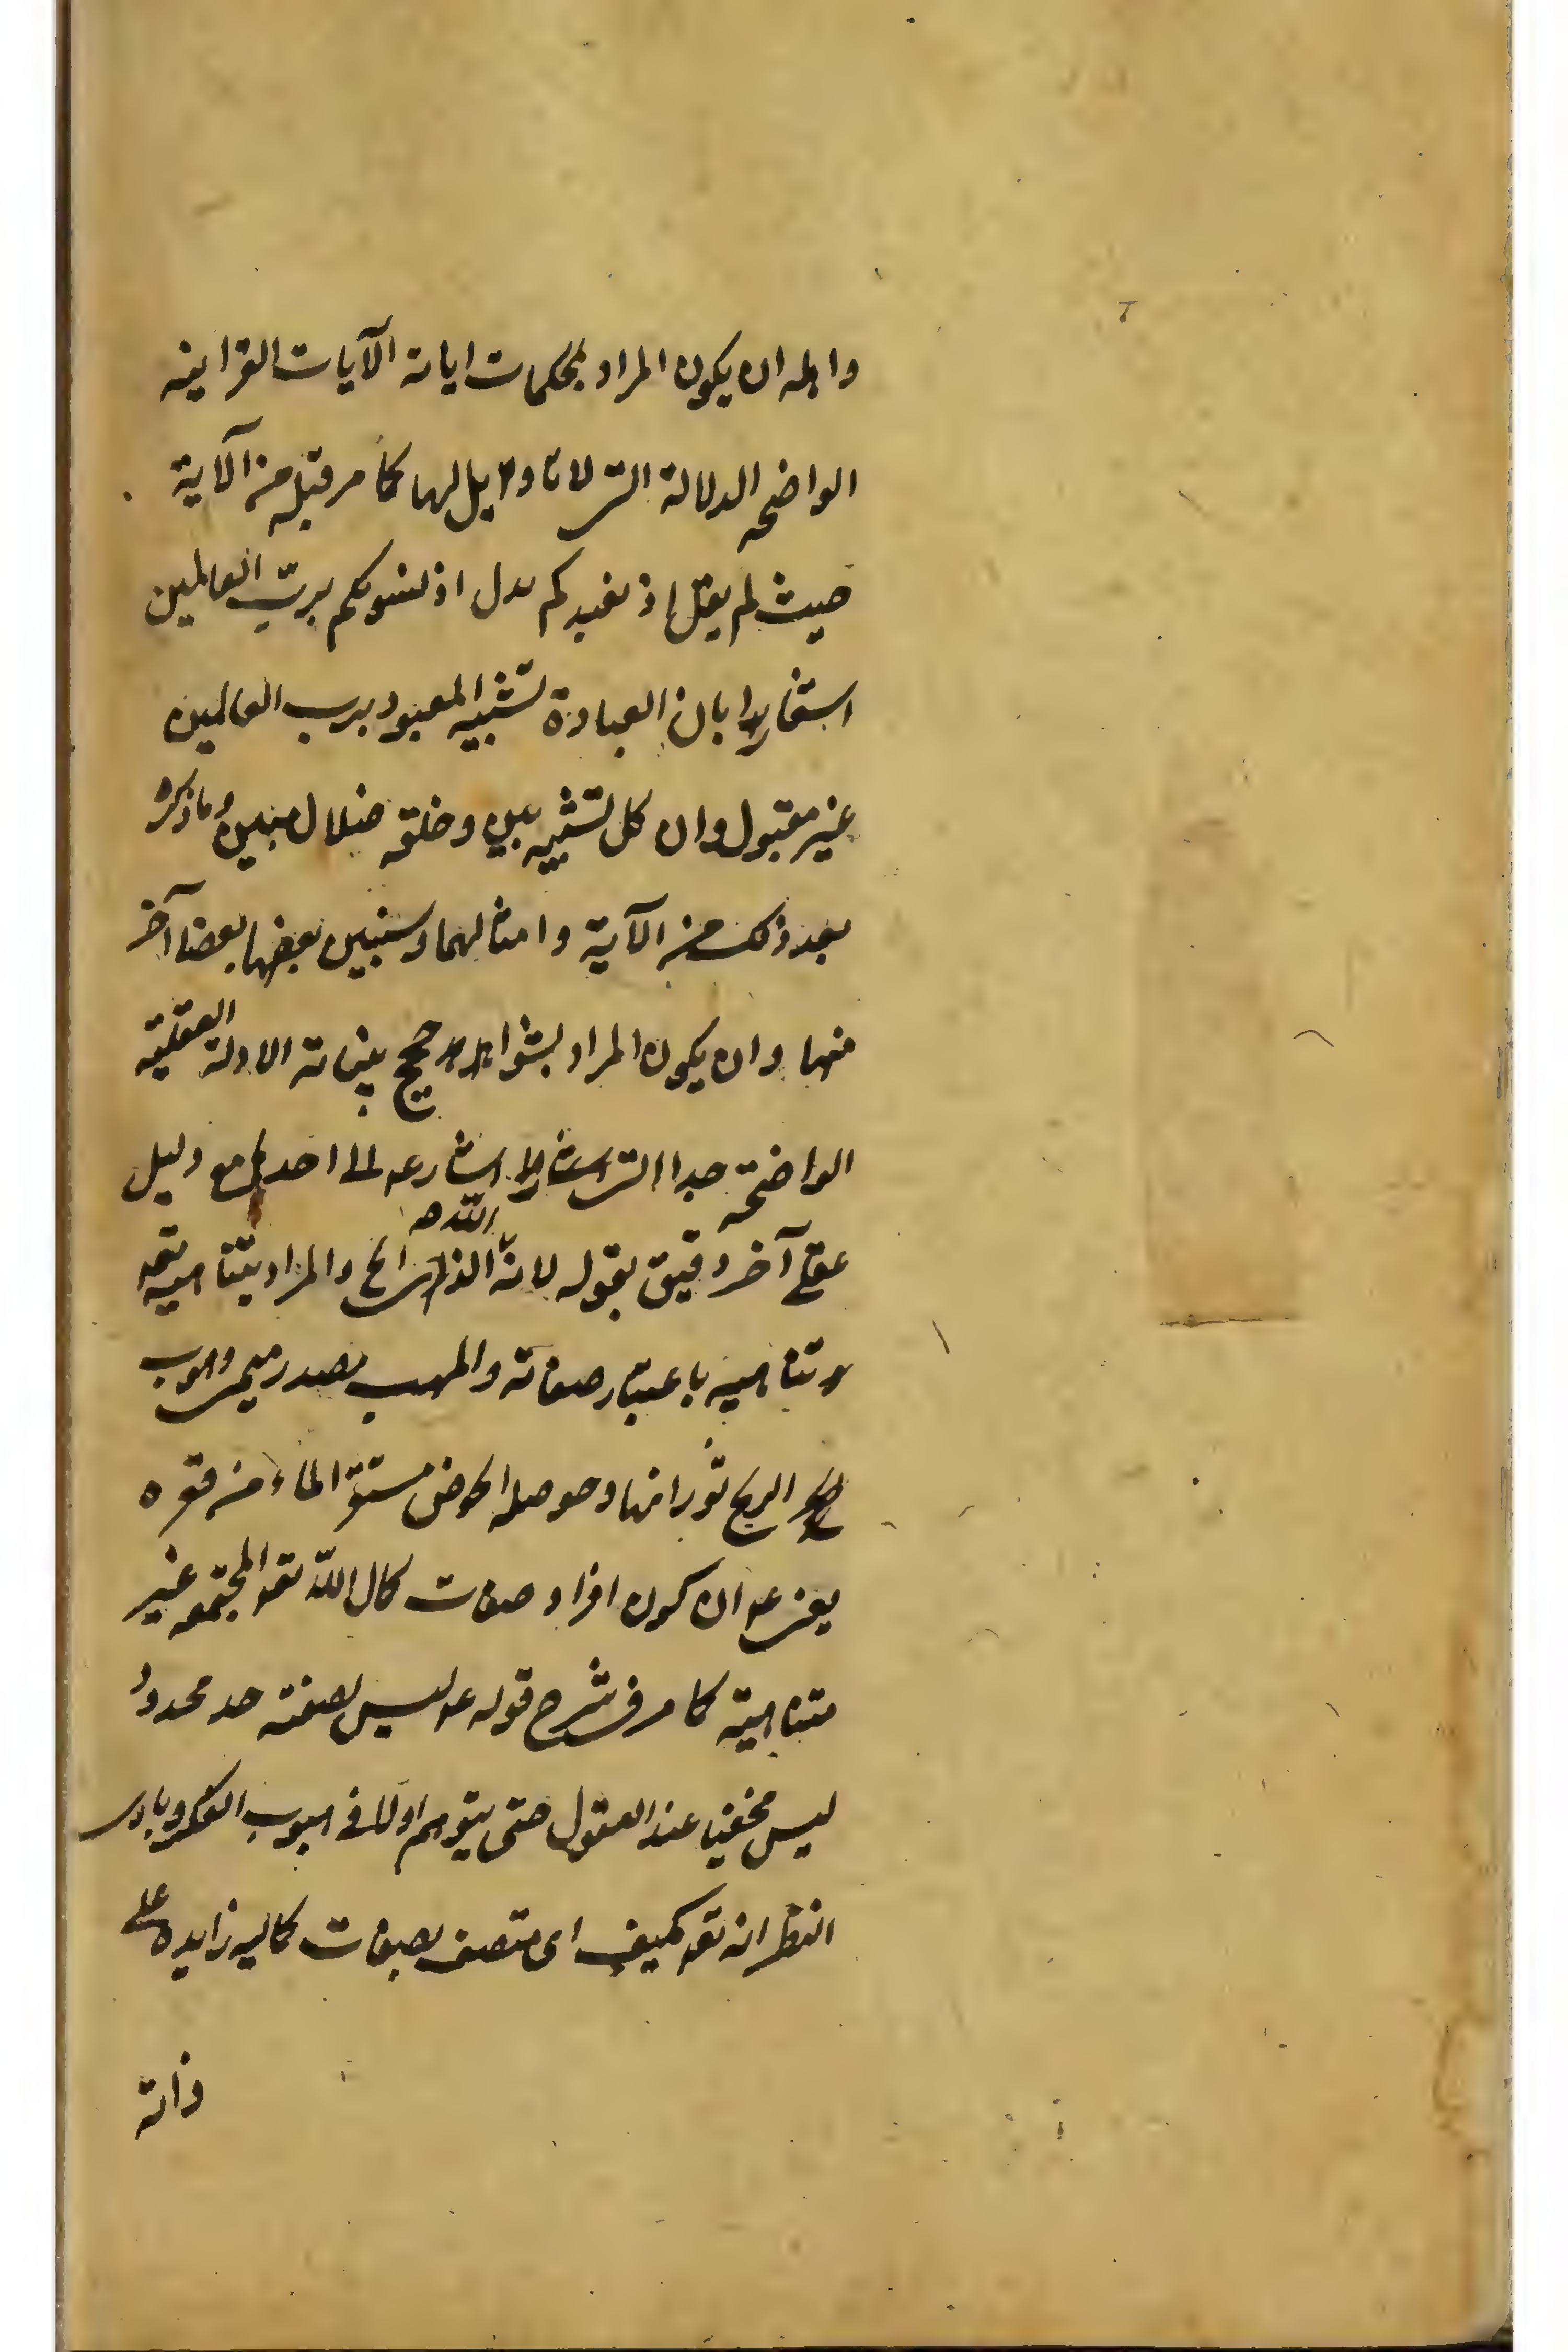 واهله ان يكون المراد بمحكمات اياته الآيات القرانيه
الواضحه الدلالة التى لا تاويل لها كما مر قبل من الآية
حيث لم يقل اذ نعبدكم بدل اذ نسويكم برب العالمين
اشعارا بان العبادة تشبيه المعبود برب العالمين
غير مقبول وان كل تشبيه بين وخلقه ضلال مبين وما ذكره
بعد ذلك من الآية وامثالهما وسنبين بعضها بعضا آخر
منها وان يكون المراد بشواهد حجج بيناته الادلة العقلية
الواضحة جدا التى اشار الى احدها مع دليل
عقلى آخر دقيق بقوله لانه الله الذى الخ والمراد بتناهيه تعه
تناهيه باعتبار صفاته والمهب مصدر ميمى وهوب
الريح ثورانها وحوصله الحوض مستقر الماء من قعره
يعنى ان كون افراد صفات كمال الله تعه المجتمعه غير
متناهية كما مر فى شرح قوله ع ليس لصفته حد محدود
ليس مخفيا عند العقول حتى يتوهم اولا فى هبوب الفكر وبادى
النظر انه تعه مكيف اى متصف بصفات كماليه زايده على
ذاته